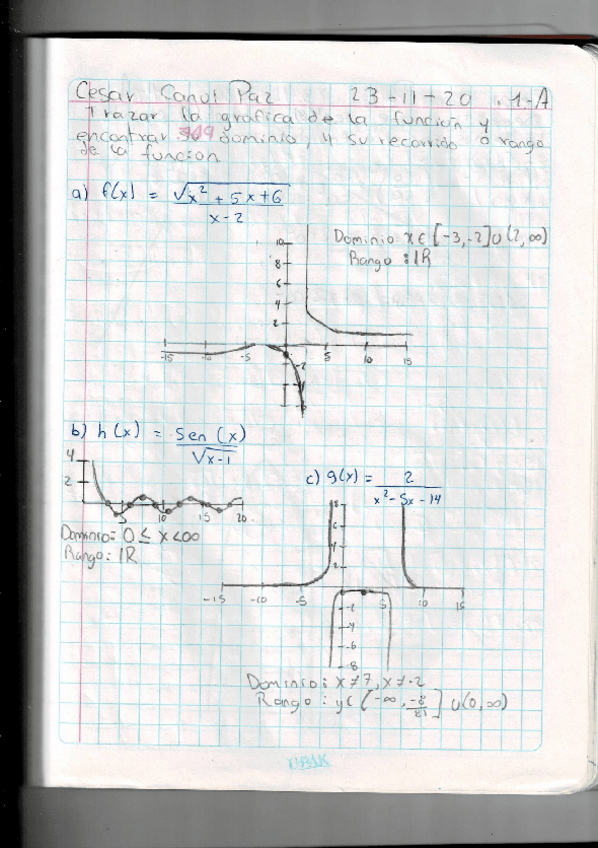 Cesar Canul Paz 23-11-20 .1-A
Trazar la grafica de la función y
encontrar dominio, y su recorrido o rango
de la funcion
a) f(x) = √(x² + 5x + 6) / (x - 2)
Dominio x ∈ [-3, -2] ∪ (2, ∞)
Rango : IR
10
8
6
4
2
-15 -10 -5 5 10 15
-2
-4
-6
b) h(x) = Sen (x) / √(x-1)
4
2
5 10 15 20
Dominio: 0 ≤ x < ∞
Rango: IR
c) g(x) = 2 / (x² - 5x - 14)
8
6
4
2
-15 -10 -5 5 10 15
-2
-4
-6
-8
Dominio: x ≠ 7, x ≠ -2
Rango : y ∈ [-∞, -8/81] ∪ (0, ∞)